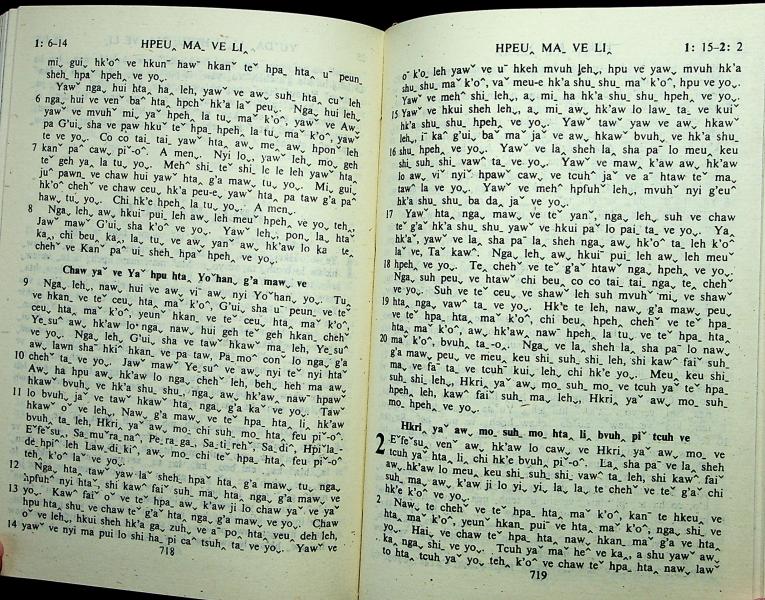 1: 6-14 HPEU˰ MA_ VE LI˰
mi_ gui˰ hk'o^ ve hkunˇ hawˇ hkanˇ teˇ hpa_ hta˰ uˉ peun_
sheh_ hpaˇ hpeh˰ ve yo˰.
Yawˇ nga˰ hui hta˰ ha˰ leh, yawˇ ve aw˰ suh_ hta˰ cuˇ leh
6 nga˰ hui ve venˇ baˆ hta˰ hpchˇ hk'a laˇ peu˰. Nga˰ hui leh,
yawˇ ve mvuhˇ mi˰ yaˇ hpeh˰ la tu˰ maˇ k'o^, yawˇ ve Aw˰
pa G'ui˰ sha ve paw hkuˇ teˇ hpa_ hpeh˰ la tu˰ maˇ k'o^, yawˇ
te ve yo˰. Co co tai_ tai_ yawˇ hta˰ aw˰ me˰ aw˰ hponˇ leh
7 kanˇ pa˰ caw˰ piˇ-o^. A men˰. Nyi lo˰, yawˇ leh˰ mo˰ geh
teˇ geh ya˰ la tu˰ yo˰. Mehˇ shi_ teˇ shi_ le le leh yawˇ hta˰
juˆ pawn˰ ve chaw hui yawˇ hta˰ g'a maw˰ tu˰ yo˰. Mi˰ gui˰
hk'o^ chehˇ ve chaw ceu˰ hk'a peu-e˰ yawˇ hta˰ pa taw g'a paˆ
haw˰ tu˰ yo˰. Chi hk'e hpeh˰ la tu˰ yo˰. A men˰.
8 Nga˰ leh˰ aw˰ hkuiˇ pui˰ leh aw˰ leh meuˇ hpeh˰ ve yo˰ teh˰
Jawˇ mawˇ G'ui˰ sha k'o^ ve yo˰. Yawˇ leh˰, pon_ la˰ htaˇ
ka˰, chi beu˰ ka˰, la˰ tu˰ ve aw˰ yanˇ aw˰ hk'aw lo ka˰ te˰
chehˇ ve Kanˇ paˆ ui˰ sheh_ hpaˇ hpeh˰ ve yo˰.
Chaw yaˇ ve Yaˇ hpu hta˰ Yo^han˰ g'a maw˰ ve
9 Nga˰ leh˰, naw˰ hui ve aw˰ viˆ aw˰ nyi Yo^han˰ yo˰. Tu˰
ve hkan˰ ve teˇ ceu˰ hta˰ maˇ k'o^, G'ui˰ sha uˉ peun_ ve teˇ
ceu˰ hta˰ maˇ k'o^, yeun^ hkan˰ ve teˇ ceu˰ hta˰ maˇ k'o^,
Ye˰su^ aw˰ hk'aw lo nga˰ naw˰ hui geh teˇ geh hkan_ chehˇ
ve yo˰. Nga˰ leh˰ G'ui˰ sha ve tawˇ hkawˇ ma˰ leh, Ye˰su^
aw˰ lawn sha^ hki^ hkan˰ ve pa taw˰ Pa˰mo^ con^ lo nga˰ g'a
10 chehˇ ta˰ ve yo˰. Jawˇ mawˇ Ye˰su^ ve aw˰ nyi teˇ nyi htaˇ
Aw˰ ha hpu aw˰ hk'aw lo nga˰ chehˇ leh, beh˰ heh˰ ma aw˰
hkawˇ bvuh˰ ve hk'a shu_ shu_ nga˰ aw˰ hk'aw˰ nawˇ hpawˇ
11 lo bvuh˰ jaˇ ve tawˇ hkawˇ hta˰ nga˰ g'a kaˇ ve yo˰. Tawˇ
hkawˇ o˰ ve leh˰, Naw˰ g'a maw˰ ve teˇ hpa_ hta˰ li˰ hk'aw
bvuh˰ ta˰ leh, Hkri˰ ya˰ aw˰ mo˰ chi suh˰ mo˰ hta˰ feu piˇ-o^.
E^fe^su˰, Sa˰muˇra˰na^, Pe˰ra˰ga˰, Sa˰ti˰reh˰, Sa˰di˰, Hpi˰la˰-
de˰hpi^ leh Law˰di˰ki^, aw˰ mo˰ chi teˇ hpa_ hta˰ feu piˇ-o^
teh˰ k'o^ la˰ ve yo˰.
12 Nga˰ hta˰ taw˰ yaw laˇ sheh_ hpaˇ hta˰ g'a maw˰ tu˰ nga˰
hpfuhˇ nyi htaˇ, shi kaw^ faiˆ suh˰ ma˰ hta˰ nga˰ g'a maw˰ ve
13 yo˰. Kaw^ faiˆ o˰ ve teˇ hpa_ aw˰ k'aw ji lo chaw yaˇ ve yaˇ
hpu hta˰ shu_ ve chaw teˇ g'aˇ hta˰ nga˰ g'a maw˰ ve yo˰. Chaw
oˇ ve leh˰, hkui sheh hk'a ga˰ zuh_ ve aˇ po˰ hta˰ veu˰ deh˰ leh,
14 yawˇ ve nyi ma pui lo shi ha_ pi ca˰ tsuh˰ ta˰ ve yo˰. Yawˇ ve
718
HPEU˰ MA_ VE LI˰ 1: 15–2: 2
oˉ k'o˰ leh yawˇ ve uˉ hkeh mvuh leh˰, hpu ve yaw˰ mvuh hk'a
shu_ shu_ maˇ k'o^, vaˇ meu-e hk'a shu_ shu_ maˇ k'o^, hpu ve yo˰.
Yawˇ ve mehˇ shi_ leh˰, a˰ mi_ ha hk'a shu_ shu_ hpeh˰ ve yo˰.
15 Yawˇ ve hkui sheh leh˰, a˰ mi_ aw˰ hk'aw lo law˰ ta˰ ve kuiˇ
hk'a shu_ shu_ hpeh˰ ve yo˰. Yawˇ tawˇ yaw ve aw˰ hkawˇ
leh˰, iˉ ka˰ g'ui˰ baˇ maˇ jaˇ ve aw˰ hkawˇ bvuh˰ ve hk'a shu_
16 shu_ hpeh˰ ve yo˰. Yawˇ ve la˰ sheh la˰ sha paˇ lo meu˰ keu
shi_ suh_ shi_ vaw^ ta˰ ve yo˰. Yawˇ ve maw˰ k'aw aw˰ hk'aw
lo aw˰ viˆ nyiˇ hpawˇ caw˰ ve tcuh^ jaˇ ve aˉ htaw teˇ ma˰
tawˇ la ve yo˰. Yawˇ ve mehˇ hpfuh˰ leh˰, mvuhˇ nyi g'eu^
hk'a shu_ shu_ ba da˰ jaˇ ve yo˰.
17 Yawˇ hta˰ nga˰ maw˰ ve teˇ yan^, nga˰ leh˰ suh ve chaw
teˇ g'aˇ hk'a shu_ shu_ yawˇ ve hkui paˇ lo pai˰ ta˰ ve yo˰. Ya˰
hk'aˆ, yawˇ ve la˰ sha paˇ la˰ sheh nga˰ aw˰ hk'o^ ta˰ leh k'o^
laˇ ve, Taˇ kaw^. Nga˰ leh˰ aw˰ hkuiˇ pui˰ leh aw˰ leh meuˇ
18 hpeh˰ ve yo˰. Te˰ chehˇ ve teˇ g'aˇ htawˇ nga˰ hpeh˰ ve yo˰.
Nga˰ suh peu˰ ve htawˇ chi beu˰ co co tai_ tai_ nga˰ te˰ chehˇ
ve yo˰. Suh ve teˇ ceu˰ ve shawˇ leh suh mvuhˇ mi˰ ve shawˇ
19 hta˰ nga˰ vaw^ ta˰ ve yo˰. Hk'e te leh, naw˰ g'a maw˰ peu˰
ve teˇ hpa_ hta˰ maˇ k'o^, chi beu˰ hpeh˰ chehˇ ve teˇ hpa_
hta˰ maˇ k'o^, aw˰ hk'aw˰ nawˇ hpeh˰ la tu˰ ve teˇ hpa_ hta˰
20 maˇ k'o^, bvuh˰ ta_-o^. Nga˰ ve la˰ sheh la˰ sha paˇ lo naw˰
g'a maw˰ peu˰ ve meu˰ keu shi_ suh_ shi_ leh, shi kaw^ faiˆ suh˰
ma˰ ve faˇ ta˰ ve tcuhˇ kui˰ leh˰, chi hk'e yo˰. Meu˰ keu shi_
suh_ shi_ leh˰, Hkri˰ ya˰ aw˰ mo˰ suh˰ mo˰ ve tcuh yaˇ teˇ hpa_
hpeh˰ leh, kaw^ faiˆ suh˰ ma˰ leh˰, Hkri˰ ya˰ aw˰ mo˰ suh˰
mo˰ hpeh˰ ve yo˰.
Hkri˰ ya˰ aw˰ mo˰ suh˰ mo˰ hta˰ li˰ bvuh˰ piˇ tcuh ve
2 E^fe^su˰ venˇ aw˰ hk'aw lo caw˰ ve Hkri˰ ya˰ aw˰ mo˰ ve
tcuh yaˇ hta˰ li˰ chi hk'e bvuh˰ piˇ-o^. La˰ sha paˇ ve la˰ sheh
aw˰ hk'aw lo meu˰ keu shi_ suh_ shi_ vaw^ ta˰ leh, shi kaw^ faiˆ
suh˰ ma˰ aw˰ k'aw ji lo yi˰ yi˰ la˰ la˰ te chehˇ ve teˇ g'aˇ chi
hk'e k'o^ ve yo˰.
2 Naw˰ te chehˇ ve teˇ hpa_ hta˰ maˇ k'o^, kanˇ te hkeu˰ ve
hta˰ maˇ k'o^, yeun^ hkan˰ puiˇ ve hta˰ maˇ k'o^, nga˰ shi ve
yo˰. Hai˰ ve chaw teˇ hpa_ hta˰ naw˰ hkan_ maˇ g'a ve hta˰
ka˰ nga˰ shi ve yo˰. Tcuh yaˇ maˇ heˆ ve ka˰, a shu yaw˰ aw˰
to hta˰ tcuh yaˇ yo˰ teh˰ k'o^ ve chaw teˇ hpa_ hta˰ naw˰ lawˇ
719